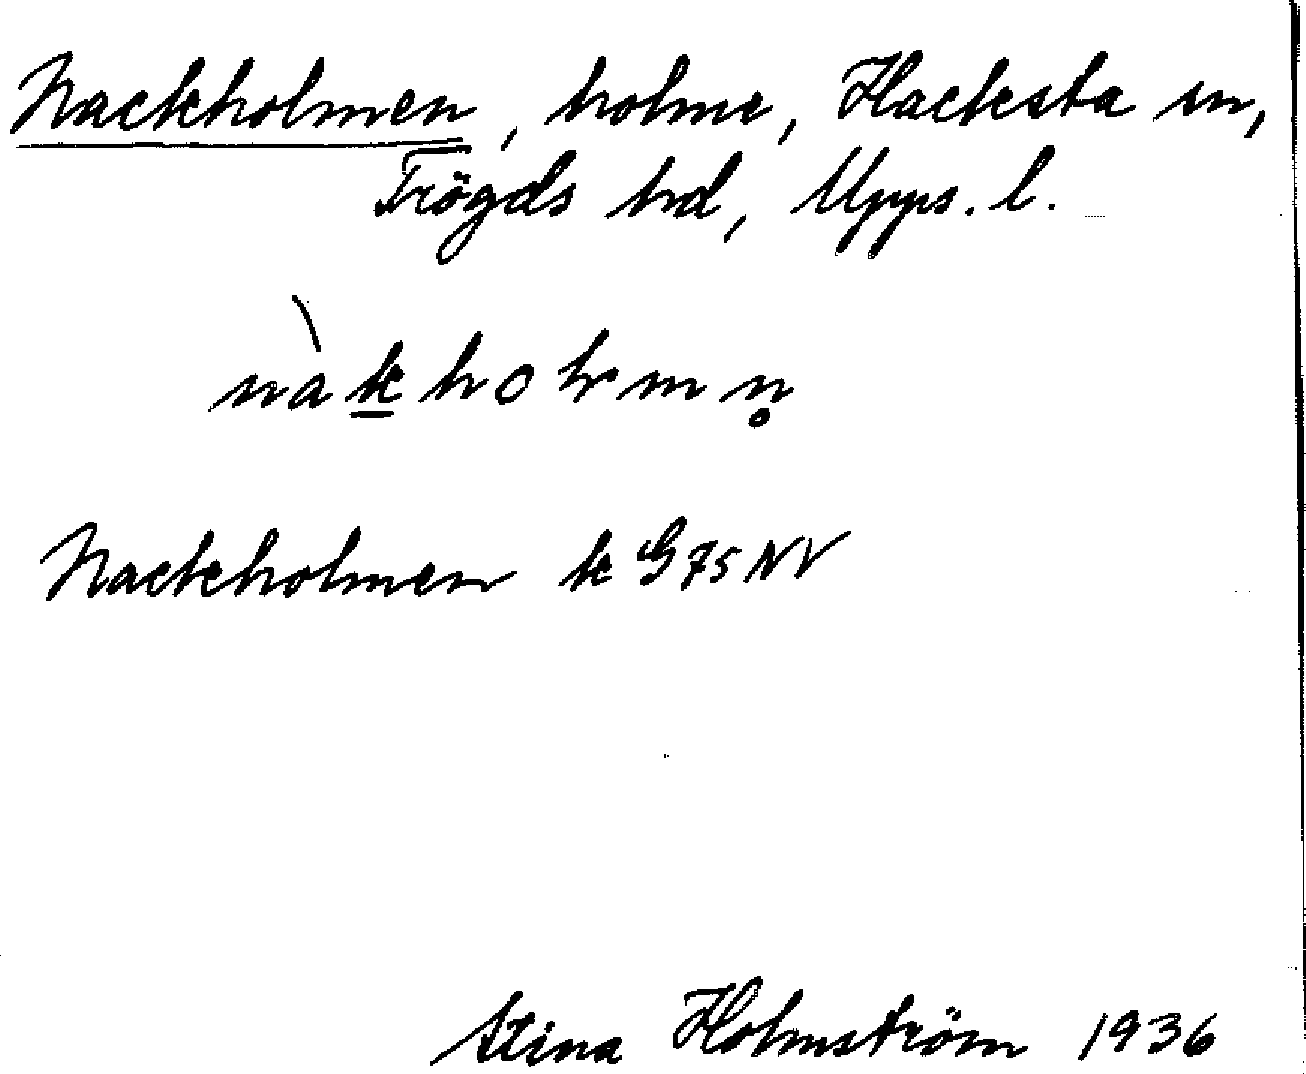 Nackholmen, holme, Hacksta sn,
Trögds hd, Upps. l.
nàkholmn̥
Nackholmen k G 75 NV
Stina Holmström 1936